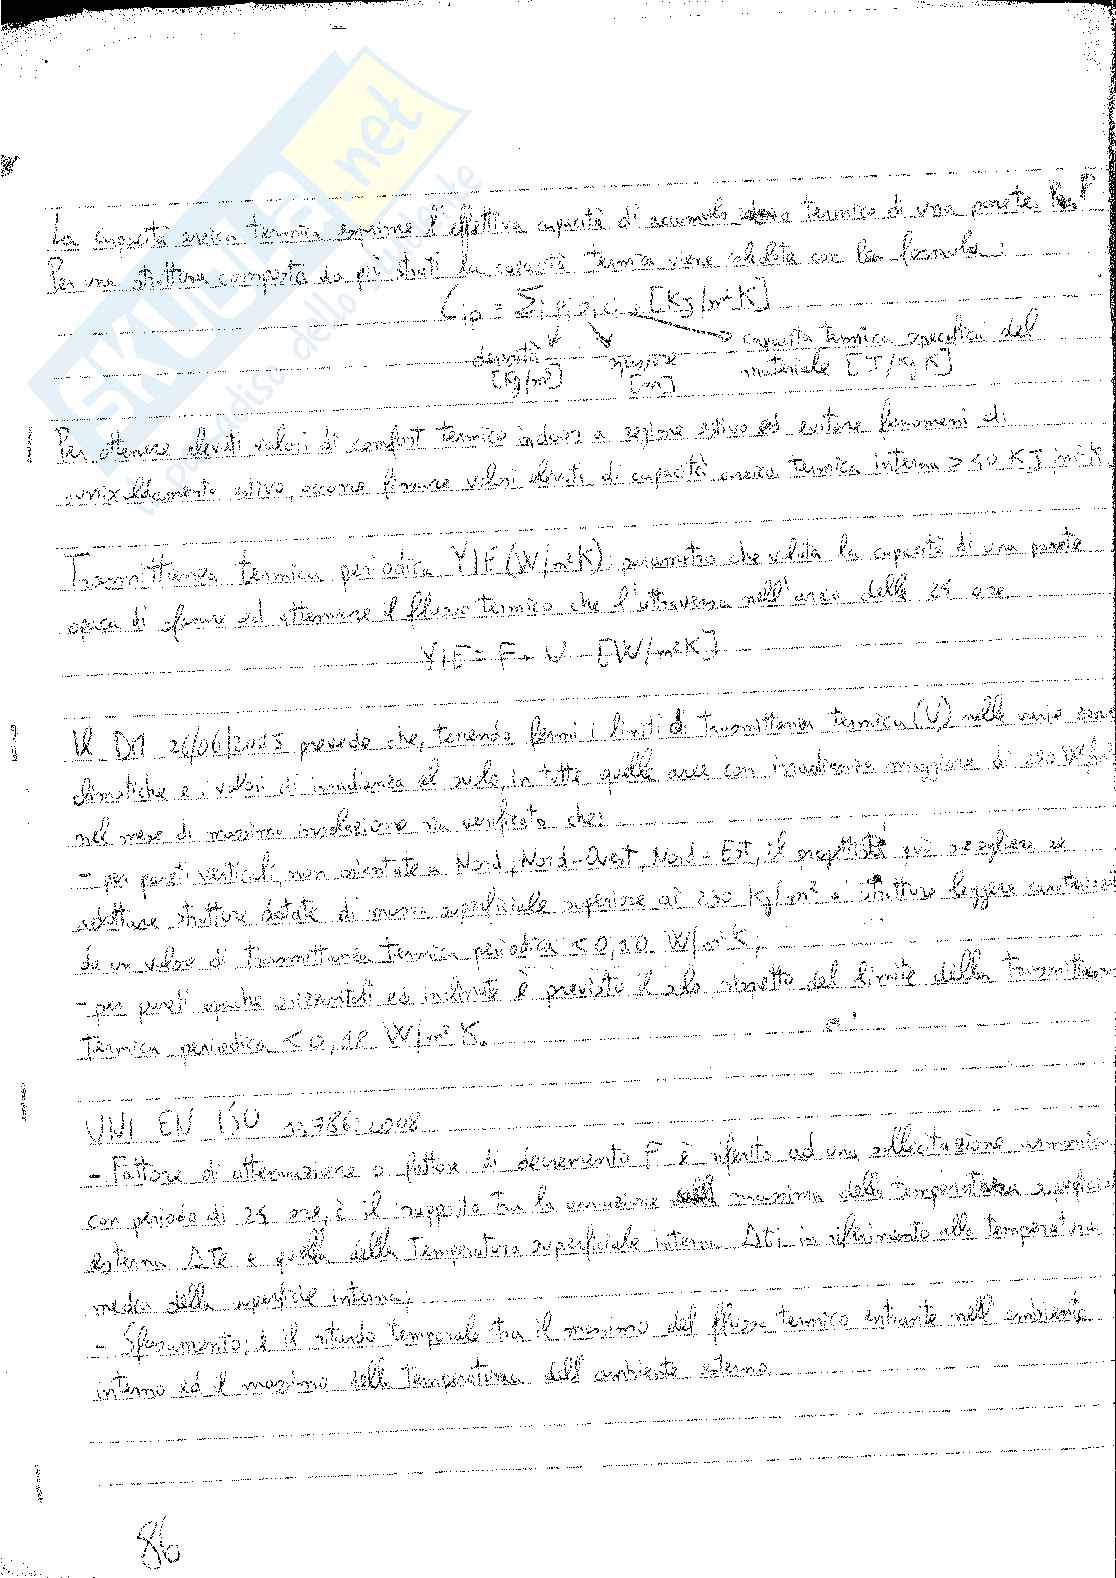 SKUOLA.net
il paradiso dello studente
La capacità areica termica esprime l'effettiva capacità di accumulo termico di una parete.
Per una struttura composta da più strati la capacità termica viene calcolata con la formula:
Cip = Σi [KJ/m²K]
densità spessore capacità termica specifica del
[Kg/m³] [m] materiale [J/Kg K]
Per ottenere elevati valori di comfort termico indoor a regime estivo ed evitare fenomeni di
surriscaldamento estivo, occorre fornire valori elevati di capacità areica termica interna > 50 KJ/m²K.
Trasmittanza termica periodica YIE (W/m²K): parametro che valuta la capacità di una parete
opaca di sfasare ed attenuare il flusso termico che l'attraversa nell'arco delle 24 ore.
YIE = F · U [W/m²K]
Il DM 26/06/ prevede che, tenendo fermi i limiti di trasmittanza termica (U) nelle varie zone
climatiche e i valori di irradianza al suolo, in tutte quelle aree con irradianza maggiore di
nel mese di massima insolazione sia verificato che:
- per pareti verticali, non orientate a Nord, Nord-Ovest, Nord-Est, il progettista può scegliere se
adottare strutture dotate di massa superficiale superiore ai 230 Kg/m² o strutture leggere
da un valore di trasmittanza termica periodica < 0,10 W/m²K;
- per pareti opache orizzontali ed inclinate è previsto il solo rispetto del limite della
termica periodica < 0,18 W/m² K.
UNI EN ISO 13786:2008
- Fattore di attenuazione o fattore di decremento F è riferito ad una sollecitazione
con periodo di 24 ore, è il rapporto tra la variazione massima della temperatura superficiale
esterna ΔTe e quella della temperatura superficiale interna ΔTi in riferimento alla temperatura
media della superficie interna;
- Sfasamento: è il ritardo temporale tra il massimo del flusso termico entrante nell'ambiente
interno ed il massimo della temperatura dell'ambiente esterno.
86